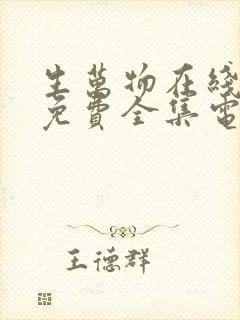 生萬物在綫
免費全集電
王德群